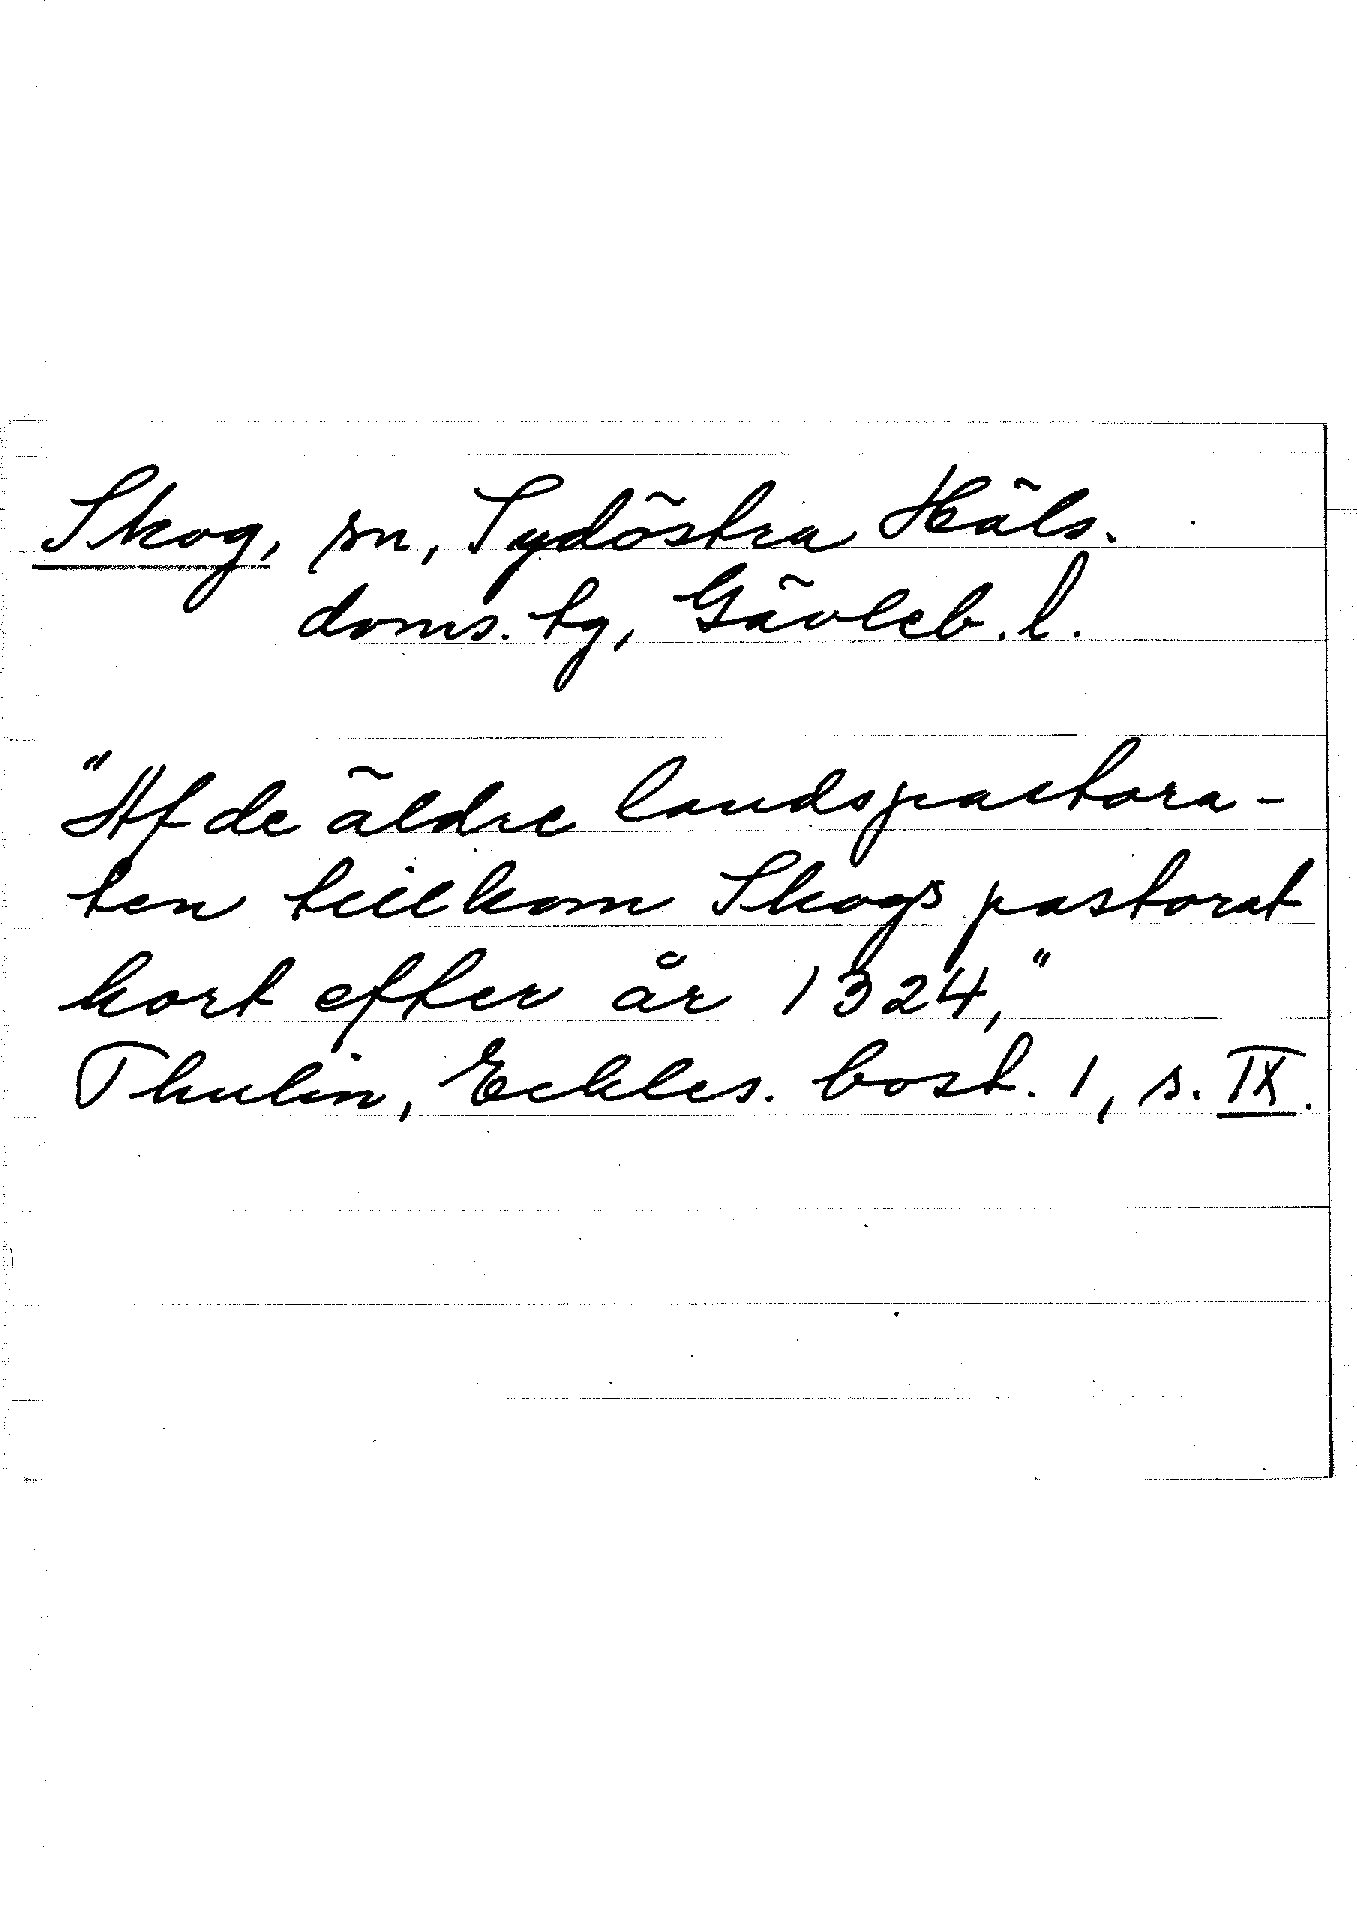 Skog, sn, Sydöstra Häls.
doms. tg, Gävleb. l.
"Af de äldre landspastora-
ten tillkom Skogs pastorat
kort efter år 1324,"
Thulin, Eckles. bost. 1, s. IX.